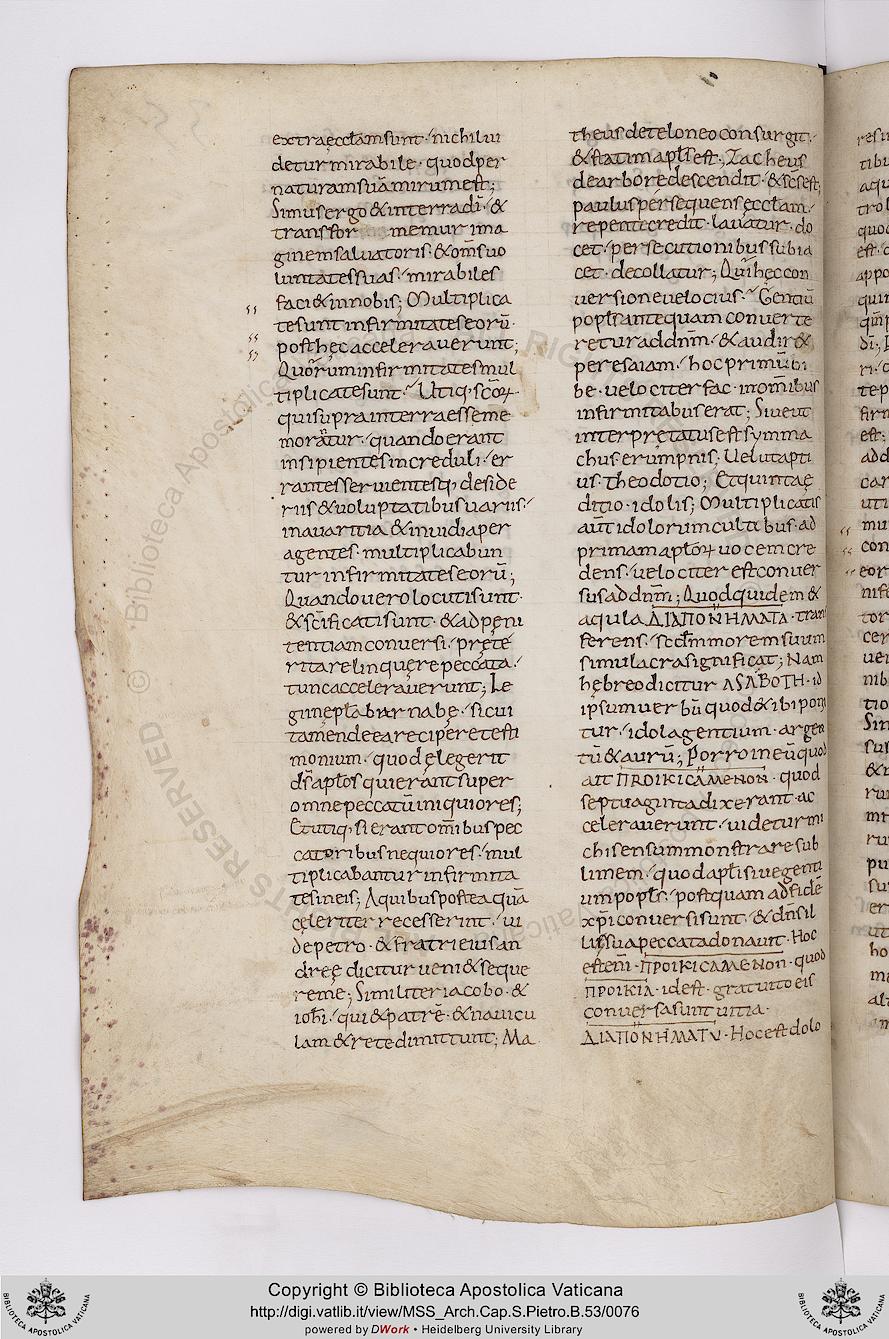 extraęccłam sunt · nichil ui
detur mirabile · quod per
naturam suā mirum est;
Simus ergo & in terra dī · &
transfor memur ima
ginem saluatoris · & om̄s uo
luntates suas · mirabiles
faci& in nobis; Multiplica
te sunt infirmitates eorū ·
post hęc accelerauerunt;
Quorum infirmitates mul
tiplicate sunt · Utiq; sc̄oꝝ ·
qui supra in terra esse me
morātur · quando erant
insipientes increduli · er
rantes seruientesq; deside
riis & uoluptatibus uariis ·
in auaritia & inuidia per
agentes · multiplicabun
tur infirmitates eorū;
Quando uero locuti sunt ·
& sc̄ificati sunt · & ad peni
tentiam conuersi · pręte
rita relinquere peccata ·
tunc accelerauerunt; Le
gimepła barnabę · si cui
tamen dea recipere testi
monium · quod elegerit
dn̄s apłos qui erant super
omne peccatū iniquiores;
Et utiq; si erant om̄ibus pec
catoribus nequiores · mul
tiplicabantur infirmita
tes in eis; A quibus postea quā
cęleriter recesserint · ui
de petro · & fratri eius an
dreę dicitur ueni & seque
re me; Similiter iacobo · &
ioh̄i · qui & patrē · & nauicu
lam & rete dimittunt; Ma
theus de teloneo consurgit ·
& statim apłs est; Zacheus
de arbore descendit · & sc̄s est;
paulus persequens ęcclam ·
repente credit · lauatur · do
cet · persecutionibus subia
cet · decollatur; Qui hęc con
uersione uelocius · Gentiū
popłs antequam conuerte
retur ad dn̄m · & audir&
per esaiam · hoc primū bi
be · uelociter fac · in om̄ibus
infirmitabus erat; Siue ut
interpretatus est symma
chus erūpnis; Uel ut apti
us theodotio; Et quinta ę
ditio · idolis; Multiplicatis
aut̄ idolorum cultibus · ad
primam apłoꝝ uocem cre
dens · uelociter est conuer
sus ad dn̄m; Quod quidem &
aquila ΔΙΑΠΟΝΗΜΑΤΑ · tran
ferens · scdm morem suum
simulacra significat; Nam
hębreo dicitur ASABOTH · id
ipsum uerbū quod & ibi poni
tur · idola gentium · argen
tū & aurū; Porro in eū quod
ait ΠROIKICAMENON · quod
septuaginta dixerant · ac
celerauerunt · uidetur mi
chi sensum monstrare sub
limem · quod apłi siue genti
um popłs · postquam ad fidē
xp̄i conuersi sunt · & dn̄s il
lis sua peccata donauit · Hoc
est eni · ΠROIKICAMENON · quod
ΠROIKIA · id est · gratuito eis
conuersa sunt uitia ·
ΔΙΑΠΟΝΗΜΑΤV · Hoc est dolo
Copyright © Biblioteca Apostolica Vaticana
http://digi.vatlib.it/view/MSS_Arch.Cap.S.Pietro.B.53/0076
powered by DWork • Heidelberg University Library